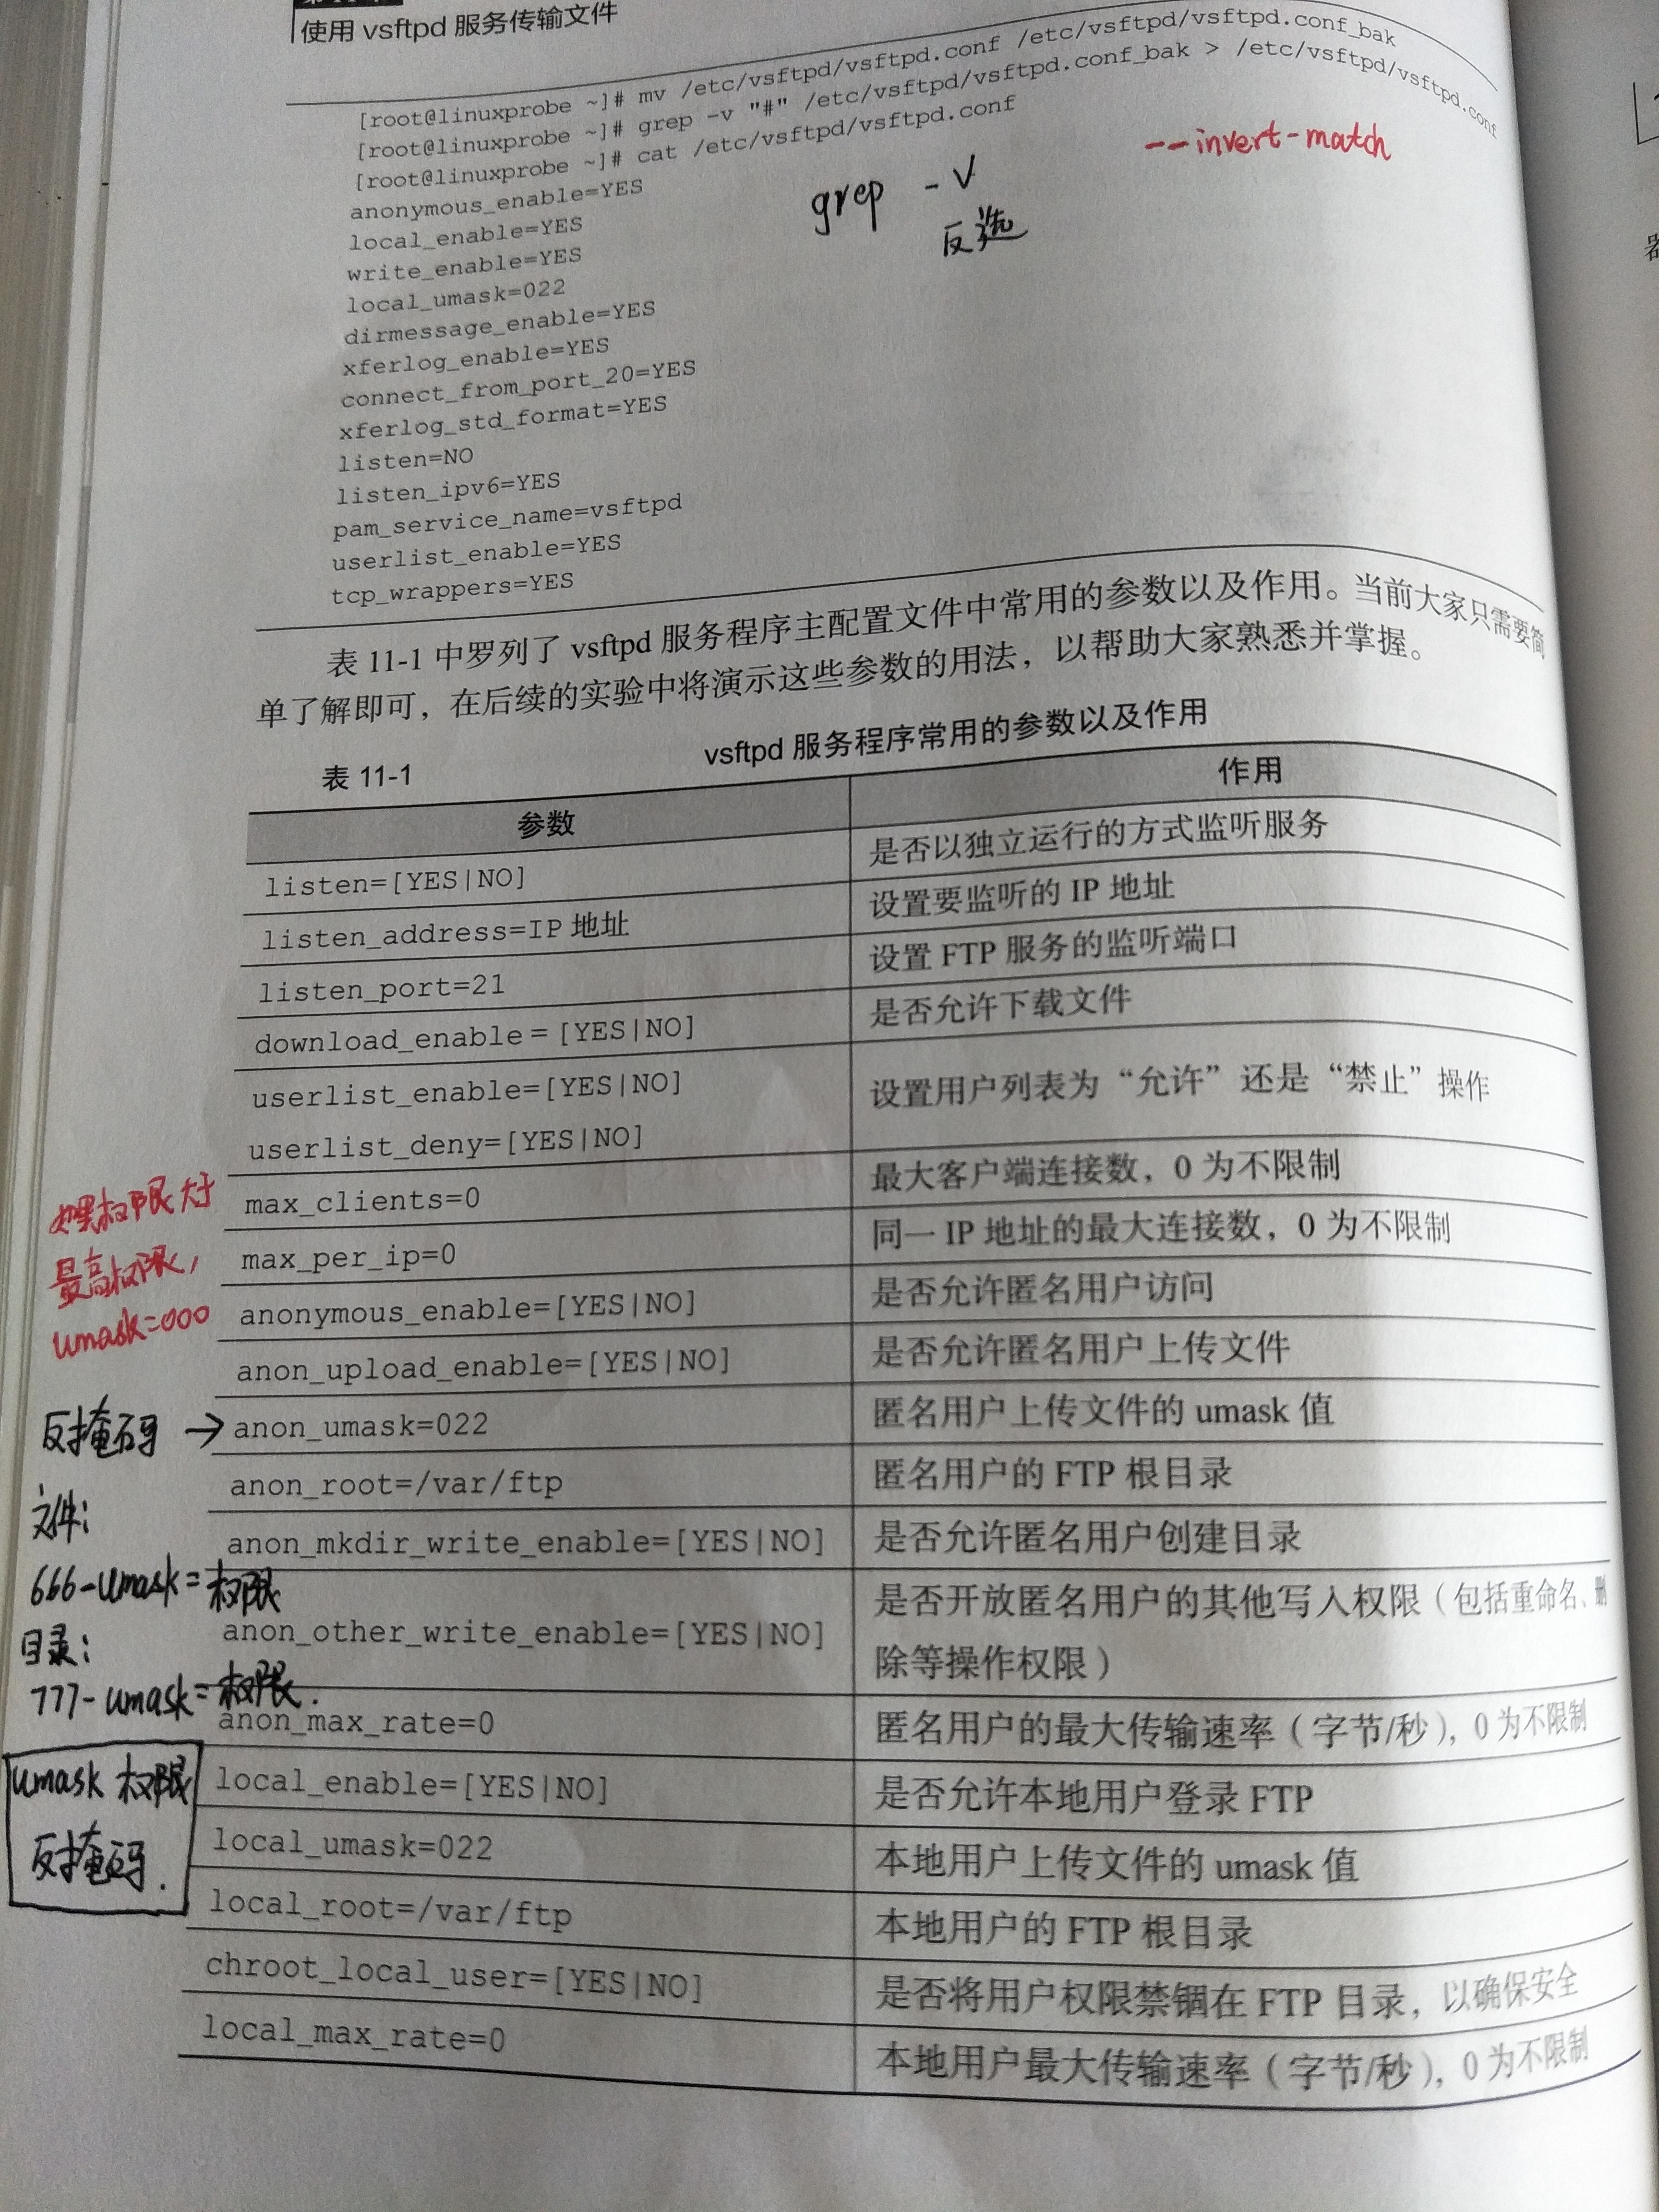 使用 vsftpd 服务传输文件
[root@linuxprobe ~]# mv /etc/vsftpd/vsftpd.conf /etc/vsftpd/vsftpd.conf_bak
[root@linuxprobe ~]# grep -v "#" /etc/vsftpd/vsftpd.conf_bak > /etc/vsftpd/vsftpd.conf
[root@linuxprobe ~]# cat /etc/vsftpd/vsftpd.conf
--invert-match
anonymous_enable=YES
grep -v
local_enable=YES
反选
write_enable=YES
local_umask=022
dirmessage_enable=YES
xferlog_enable=YES
connect_from_port_20=YES
xferlog_std_format=YES
listen=NO
listen_ipv6=YES
pam_service_name=vsftpd
userlist_enable=YES
tcp_wrappers=YES
表 11-1 中罗列了 vsftpd 服务程序主配置文件中常用的参数以及作用。当前大家只需要简
单了解即可，在后续的实验中将演示这些参数的用法，以帮助大家熟悉并掌握。
表 11-1 vsftpd 服务程序常用的参数以及作用
参数 作用
listen=[YES|NO] 是否以独立运行的方式监听服务
listen_address=IP 地址 设置要监听的 IP 地址
listen_port=21 设置 FTP 服务的监听端口
download_enable＝[YES|NO] 是否允许下载文件
userlist_enable=[YES|NO]
userlist_deny=[YES|NO] 设置用户列表为“允许”还是“禁止”操作
max_clients=0 最大客户端连接数，0 为不限制
max_per_ip=0 同一 IP 地址的最大连接数，0 为不限制
anonymous_enable=[YES|NO] 是否允许匿名用户访问
anon_upload_enable=[YES|NO] 是否允许匿名用户上传文件
anon_umask=022 匿名用户上传文件的 umask 值
anon_root=/var/ftp 匿名用户的 FTP 根目录
anon_mkdir_write_enable=[YES|NO] 是否允许匿名用户创建目录
anon_other_write_enable=[YES|NO] 是否开放匿名用户的其他写入权限（包括重命名、删
除等操作权限）
anon_max_rate=0 匿名用户的最大传输速率（字节/秒），0 为不限制
local_enable=[YES|NO] 是否允许本地用户登录 FTP
local_umask=022 本地用户上传文件的 umask 值
local_root=/var/ftp 本地用户的 FTP 根目录
chroot_local_user=[YES|NO] 是否将用户权限禁锢在 FTP 目录，以确保安全
local_max_rate=0 本地用户最大传输速率（字节/秒），0 为不限制
如果权限大于
最高权限，
umask=000
反掩码 →
文件：
666-umask=权限
目录：
777-umask=权限.
umask 权限
反掩码.